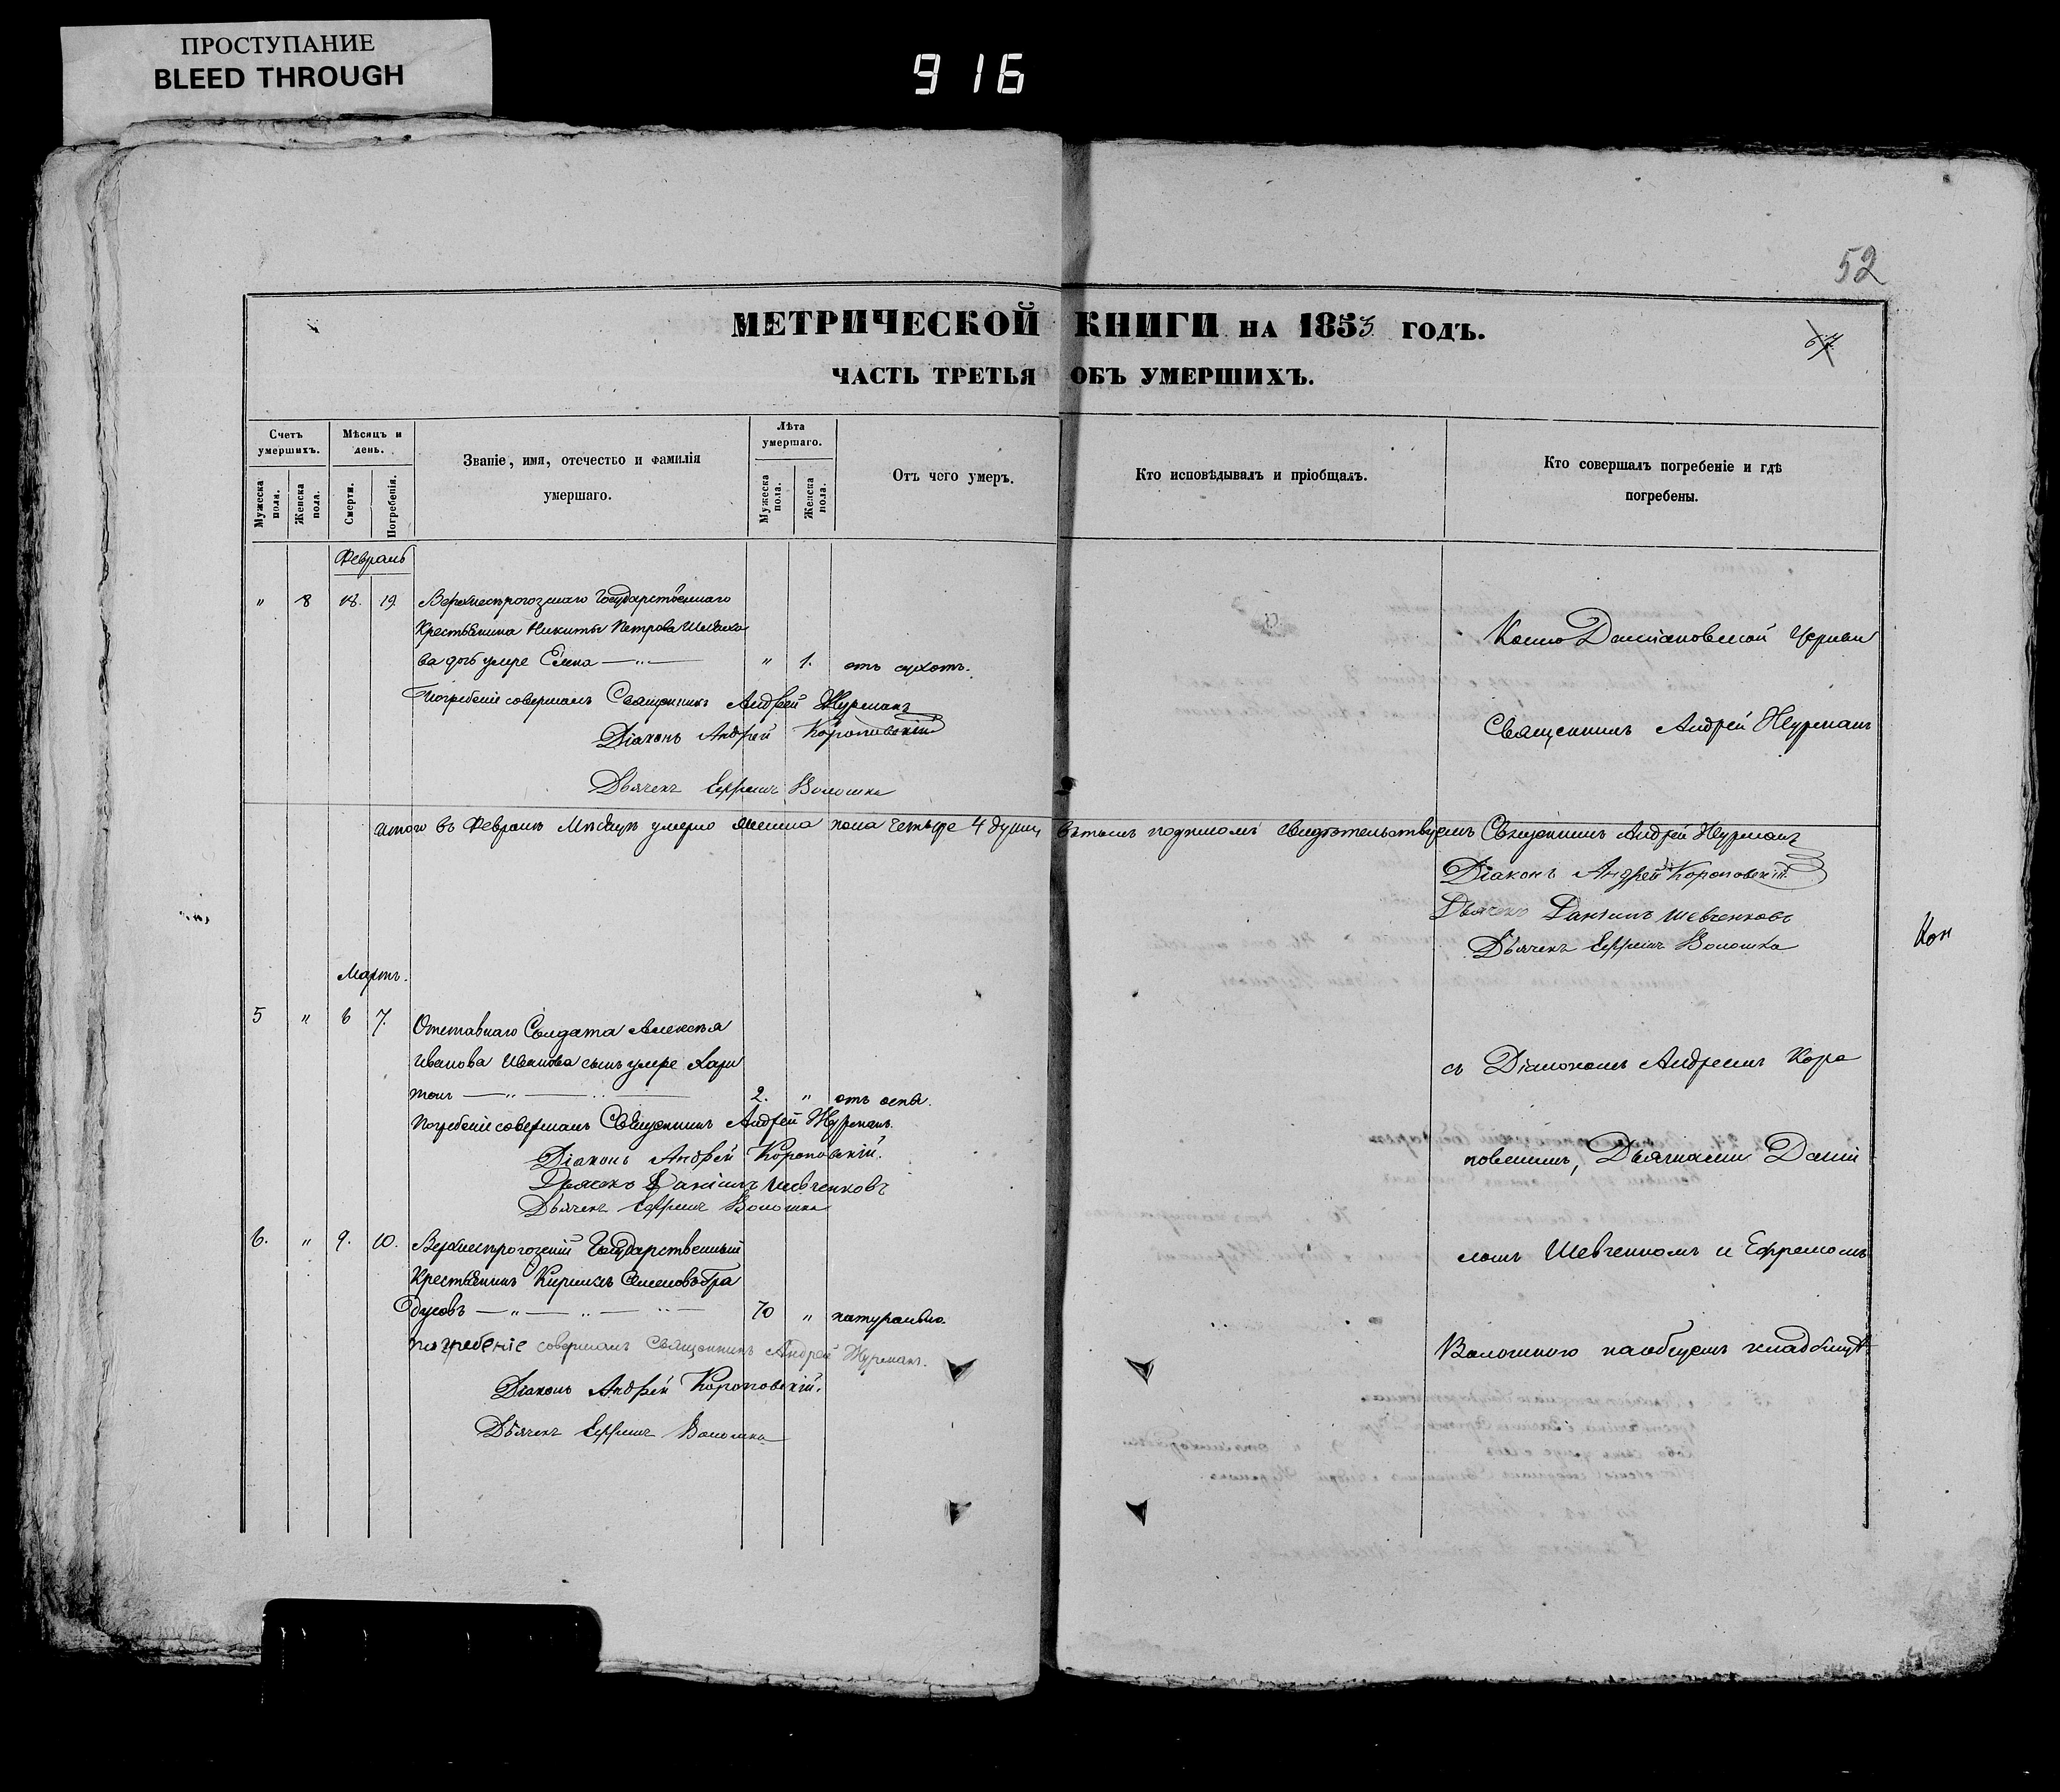 ПРОСТУПАНИЕ
BLEED THROUGH
916
52
МЕТРИЧЕСКОЙ КНИГИ НА 1853 ГОДЪ.
ЧАСТЬ ТРЕТЬЯ ОБЪ УМЕРШИХЪ.
Счетъ умершихъ.
Мужеска пола.
Женска пола.
Мѣсяцъ и день.
Смерти.
Погребенія.
Званіе, имя, отечество и фамилія
умершаго.
Лѣта умершаго.
Мужеска пола.
Женска пола.
Отъ чего умеръ.
Кто исповѣдывалъ и пріобщалъ.
Кто совершалъ погребеніе и гдѣ
погребены.
Февраль
" 8 18. 19. Верхнесърогозскаго Государственнаго
Крестьянина Никиты Петрова
ва дочь умре Елена — " — " 1. отъ сухотъ.
Погребеніе совершалъ Священникъ Андрей Журманъ
Діаконъ Андрей Короповскій
Дьячекъ Ефремъ Волошка
Космо Даміановской Церкви
Священникъ Андрей Журманъ
итого въ Февралѣ Мѣсяцѣ умерло женска пола четыре 4 души вътомъ подписомъ свидѣтельствуемъ Священникъ Андрей Журманъ
Діаконъ Андрей Короповскій
Дьячекъ Даніилъ Шевченковъ
Дьячекъ Ефремъ Волошка
Кон
Мартъ.
5 " 6 7. Отставнаго Солдата Алексѣя
Иванова Иванова сынъ умре Хари
тонъ — " — 2. " отъ оспы.
Погребеніе совершалъ Священникъ Андрей Журманъ.
Діаконъ Андрей Короповскій.
Дьячекъ Даніилъ Шевченковъ
Дьячекъ Ефремъ Волошка
6. " 9. 10. Верхнесърогозскій Государственный
Крестьянинъ Кирилъ Семеновъ
— " — 70 " натурально.
погребеніе совершалъ Священникъ Андрей Журманъ.
Діаконъ Андрей Короповскій.
Дьячекъ Ефремъ Волошка
съ Діакономъ Андреемъ Коро
повскимъ, Дьячками Даніи
ломъ Шевченкомъ и Ефремомъ
Волошкою наобщемъ кладбищѣ